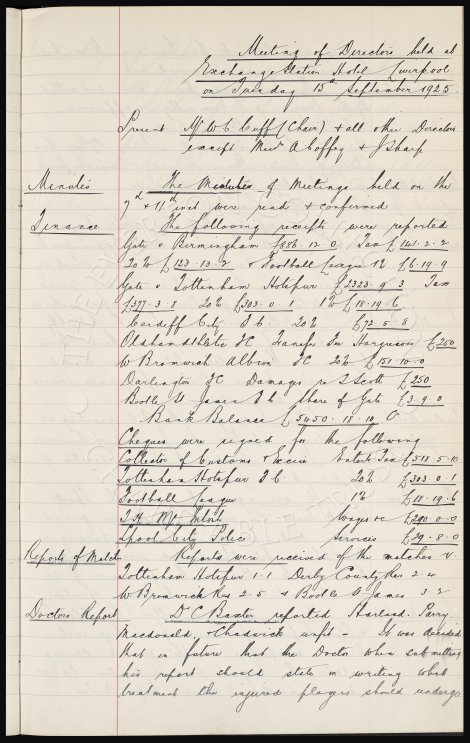 Meeting of Directors held at
Exchange Station Hotel Liverpool
on Tuesday 15th September 1925
Present Mr W C Cuff (Chair) & all other Directors
except Messrs A Coffey & J Sharp
Minutes
The Minutes of Meetings held on the
7th & 11th inst were read & confirmed
Finance
The following receipts were reported
Gate v Birmingham £886.12.0 Tax £141.2.2
20% £123.13.2 & Football League 1% £6.19.9
Gate v Tottenham Hotspur £2323.9.3 Tax
£377.3.8 20% £303.0.1 1% £18.19.6
Cardiff City F.C. 20% £72.5.8
Oldham Athletic FC Transfer Fee Hargreaves £250
W Bromwich Albion FC 20% £151.10.0
Darlington FC Damages re S Scott £250
Bootle St James F.C. share of Gate £3.9.0
Bank Balance £5450.18.10 O
Cheques were signed for the following
Collector of Customs & Excise Enterts Tax £518.5.10
Tottenham Hotspur F.C. 20% £303.0.1
Football League 1% £18.19.6
T.H. McIntosh Wages &c £290.0.0
Lpool City Police Services £29.8.0
Reports of Match
Reports were received of the matches v
Tottenham Hotspur 1.1 Derby County Res 2.4
W Bromwich Res 2.5 & Bootle St James 3.2
Doctors Report
Dr C Baxter reported Harland. Parry.
Macdonald, Chadwick unfit - It was decided
that in future that the Doctor when submitting
his report should state in writing what
treatment the injured players should undergo